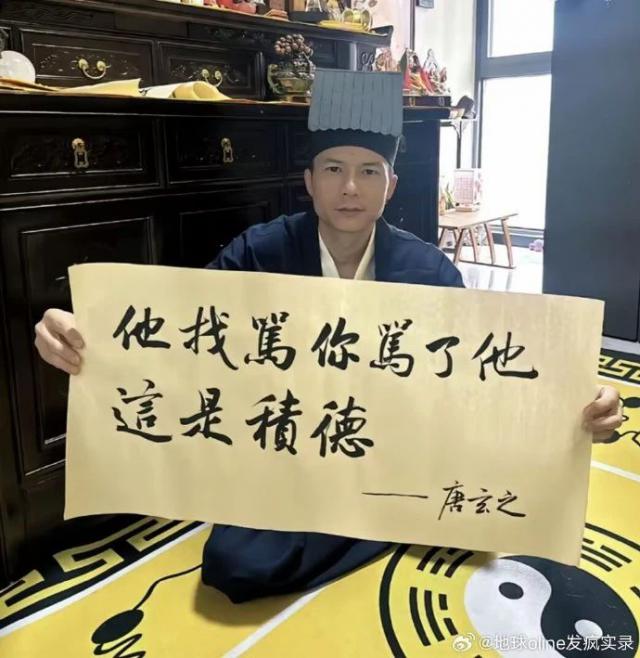 他找罵你罵了他
這是積德
——唐玄之
@地球oline发疯实录